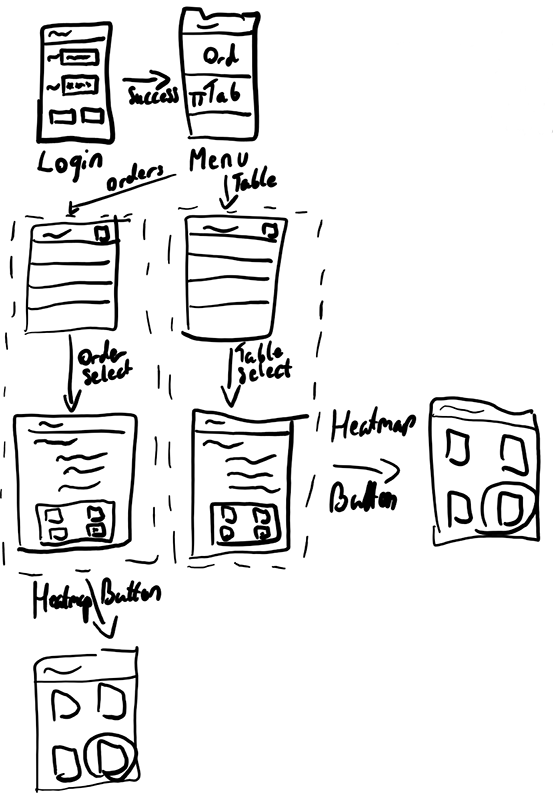 Ord
Success
Tab
Login
Menu
Orders
Table
Order
Select
Table
Select
Heatmap
Button
Heatmap Button